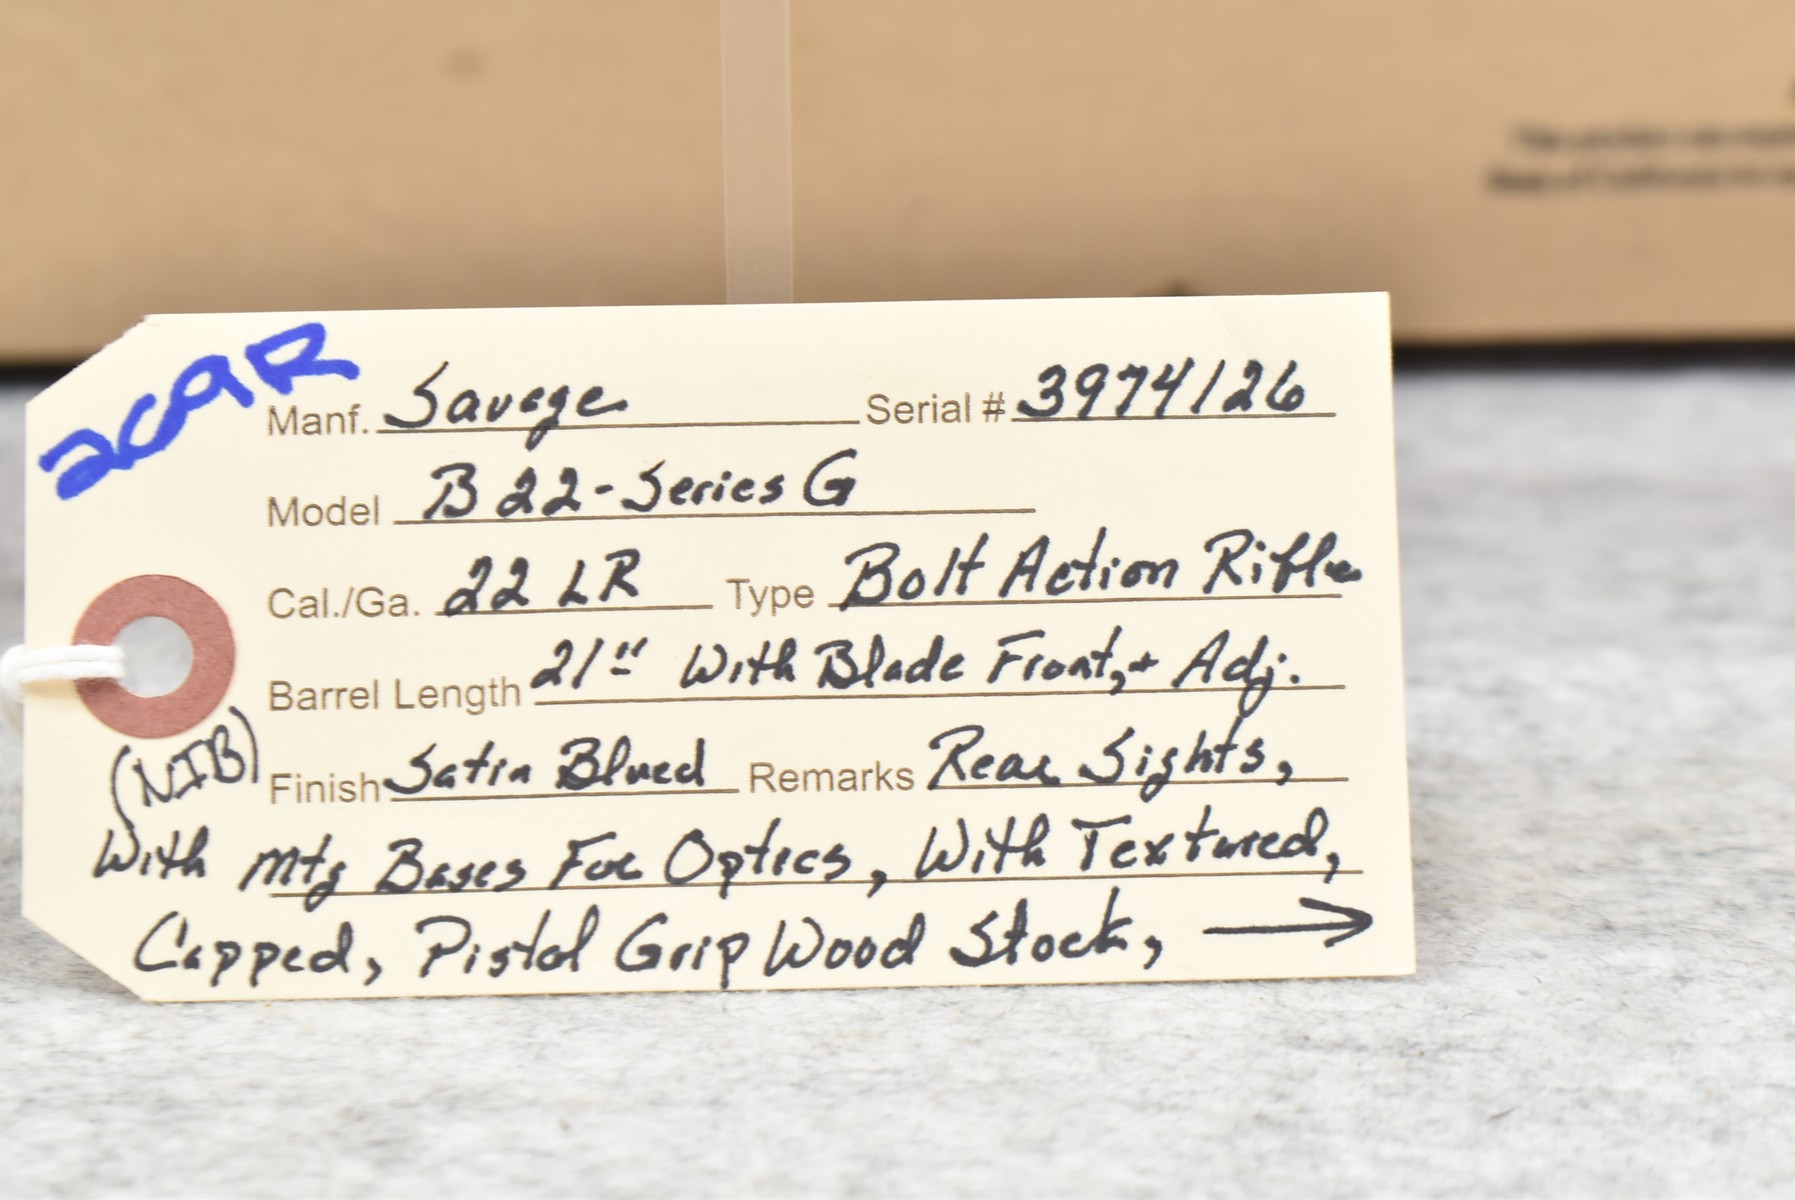 2C9R
Manf. Savage Serial # 3974126
Model B22-Series G
Cal./Ga. 22 LR Type Bolt Action Rifle
Barrel Length 21" With Blade Front, + Adj.
(NIB) Finish Satin Blued Remarks Rear Sights,
With Mtg Bases For Optics, With Textured,
Capped, Pistol Grip Wood Stock, →